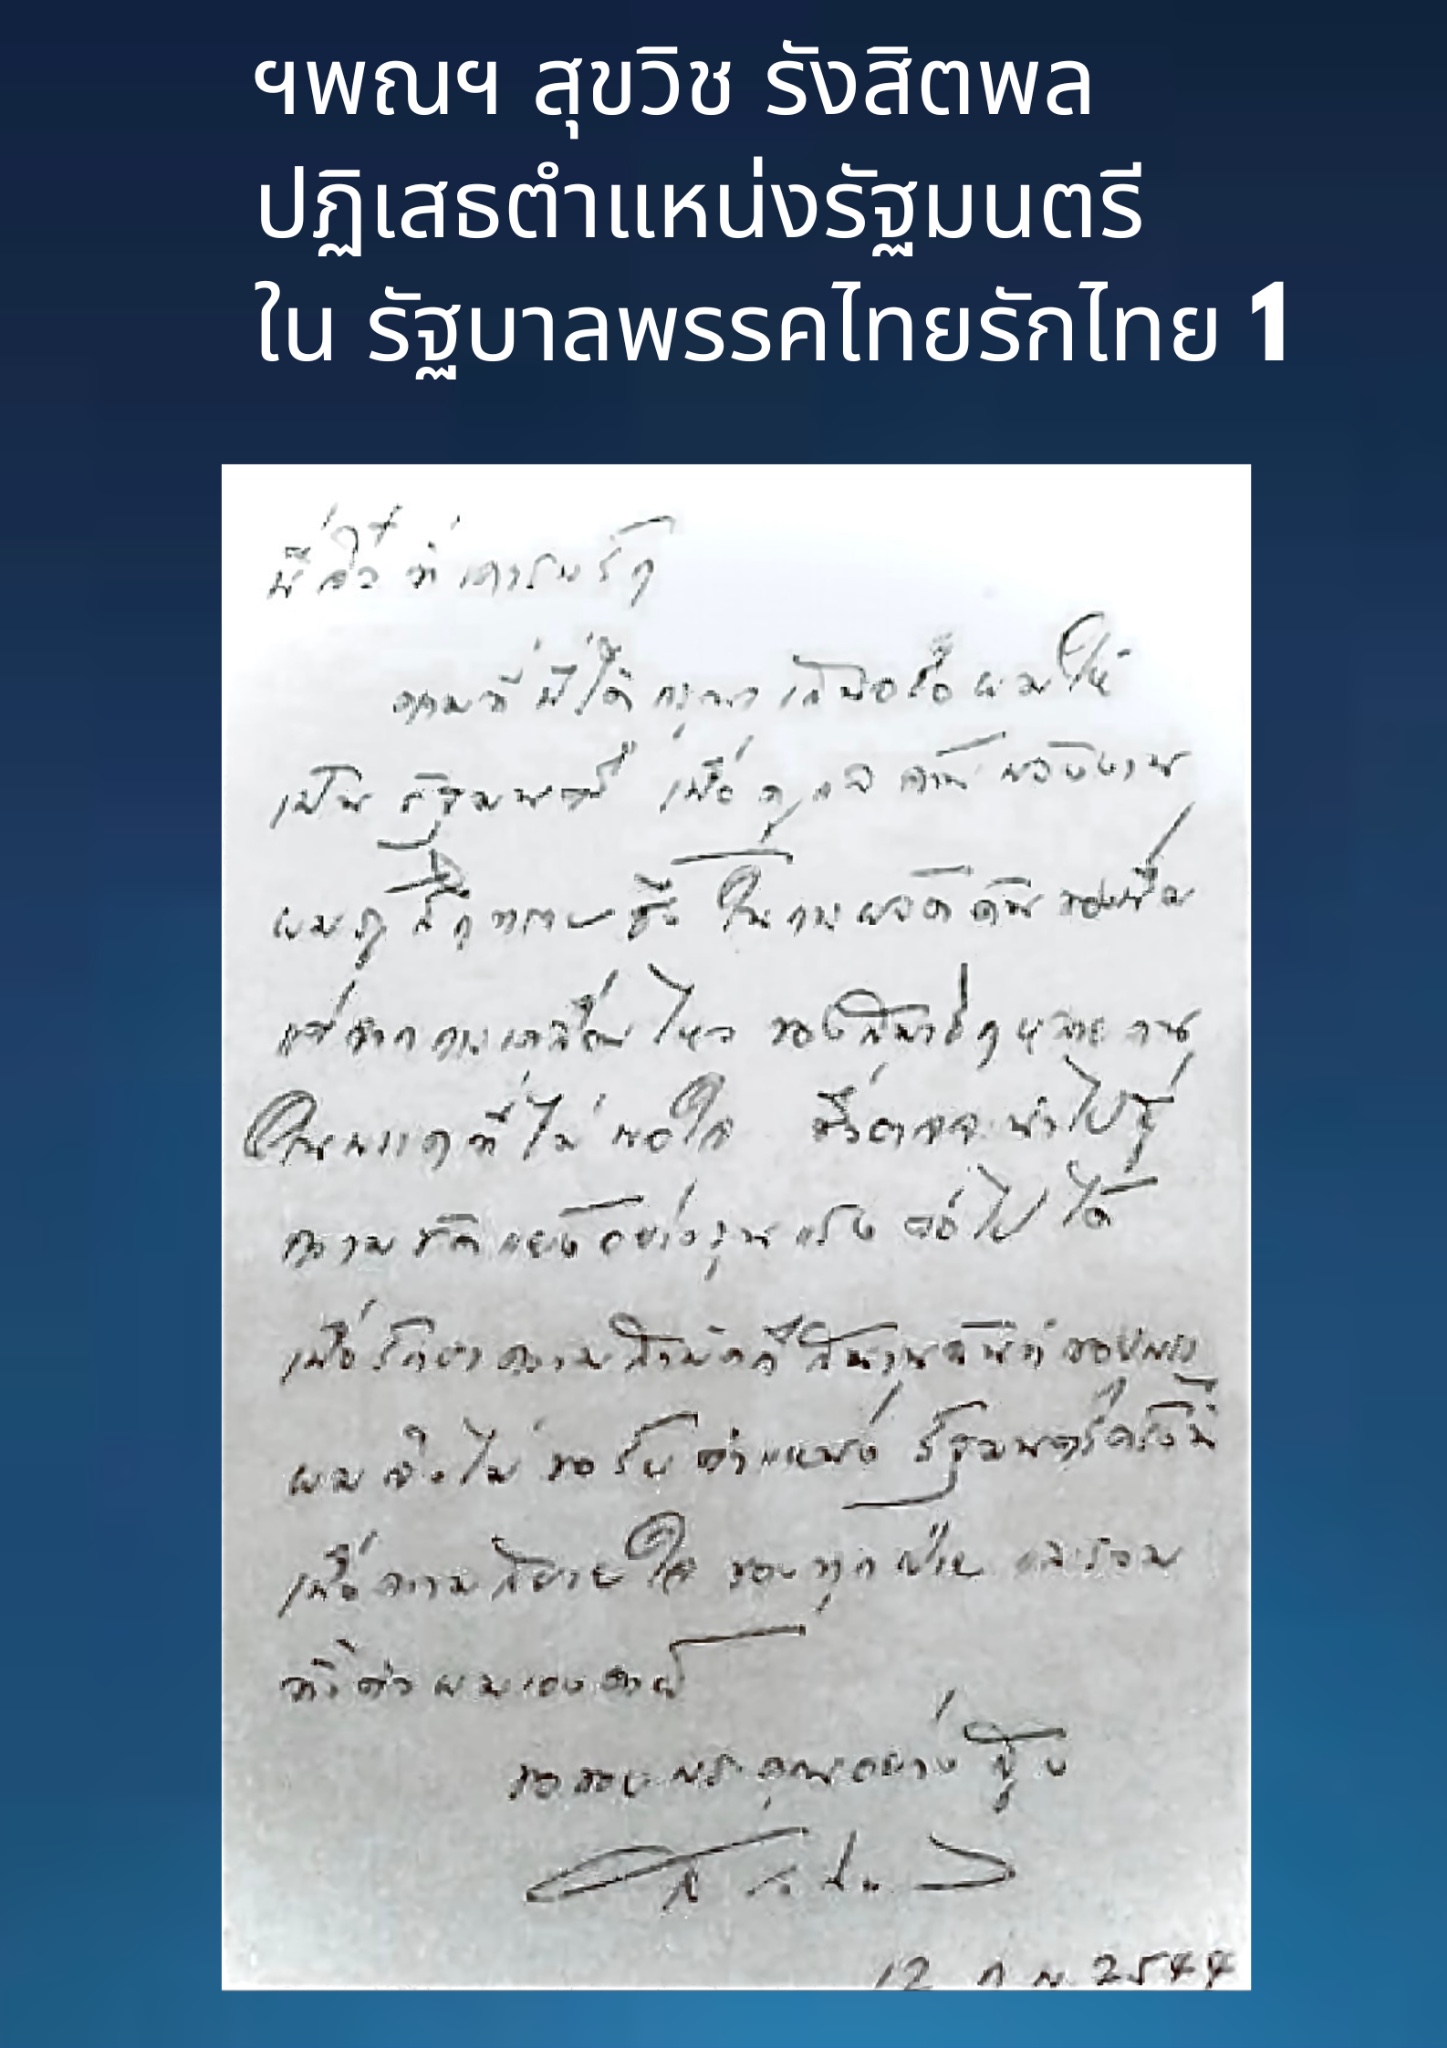 ฯพณฯ สุขวิช รังสิตพล
ปฏิเสธตำแหน่งรัฐมนตรี
ใน รัฐบาลพรรคไทยรักไทย 1
ที่เคารพรัก
ตามที่พี่ได้กรุณาเสนอชื่อผมให้
เป็นรัฐมนตรี เพื่อดูแลด้านพลังงาน
ผมรู้สึกซาบซึ้งในการผลักดันของพี่
แต่จากการเคลื่อนไหว ของสมาชิกหลายคน
ในพรรคที่ไม่พอใจ ซึ่งอาจจะนำไปสู่
ความขัดแย้งอย่างรุนแรงต่อไปได้
เพื่อรักษาความสามัคคีสมานฉันท์ของพรรค
ผมจึงไม่ขอรับตำแหน่งรัฐมนตรีครั้งนี้
เพื่อความสบายใจ ของทุกฝ่าย และรวม
ทั้งตัวผมเองด้วย
ขอขอบพระคุณอย่างสูง
12 ก พ 2544